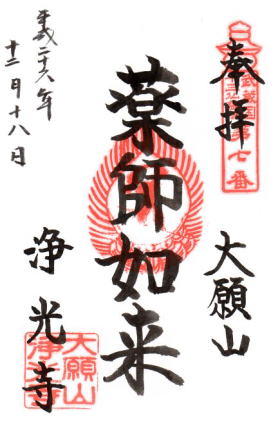 奉拝
第七番
大願山
薬師如来
浄光寺
大願山
浄光寺
平成二十六年
十二月十八日